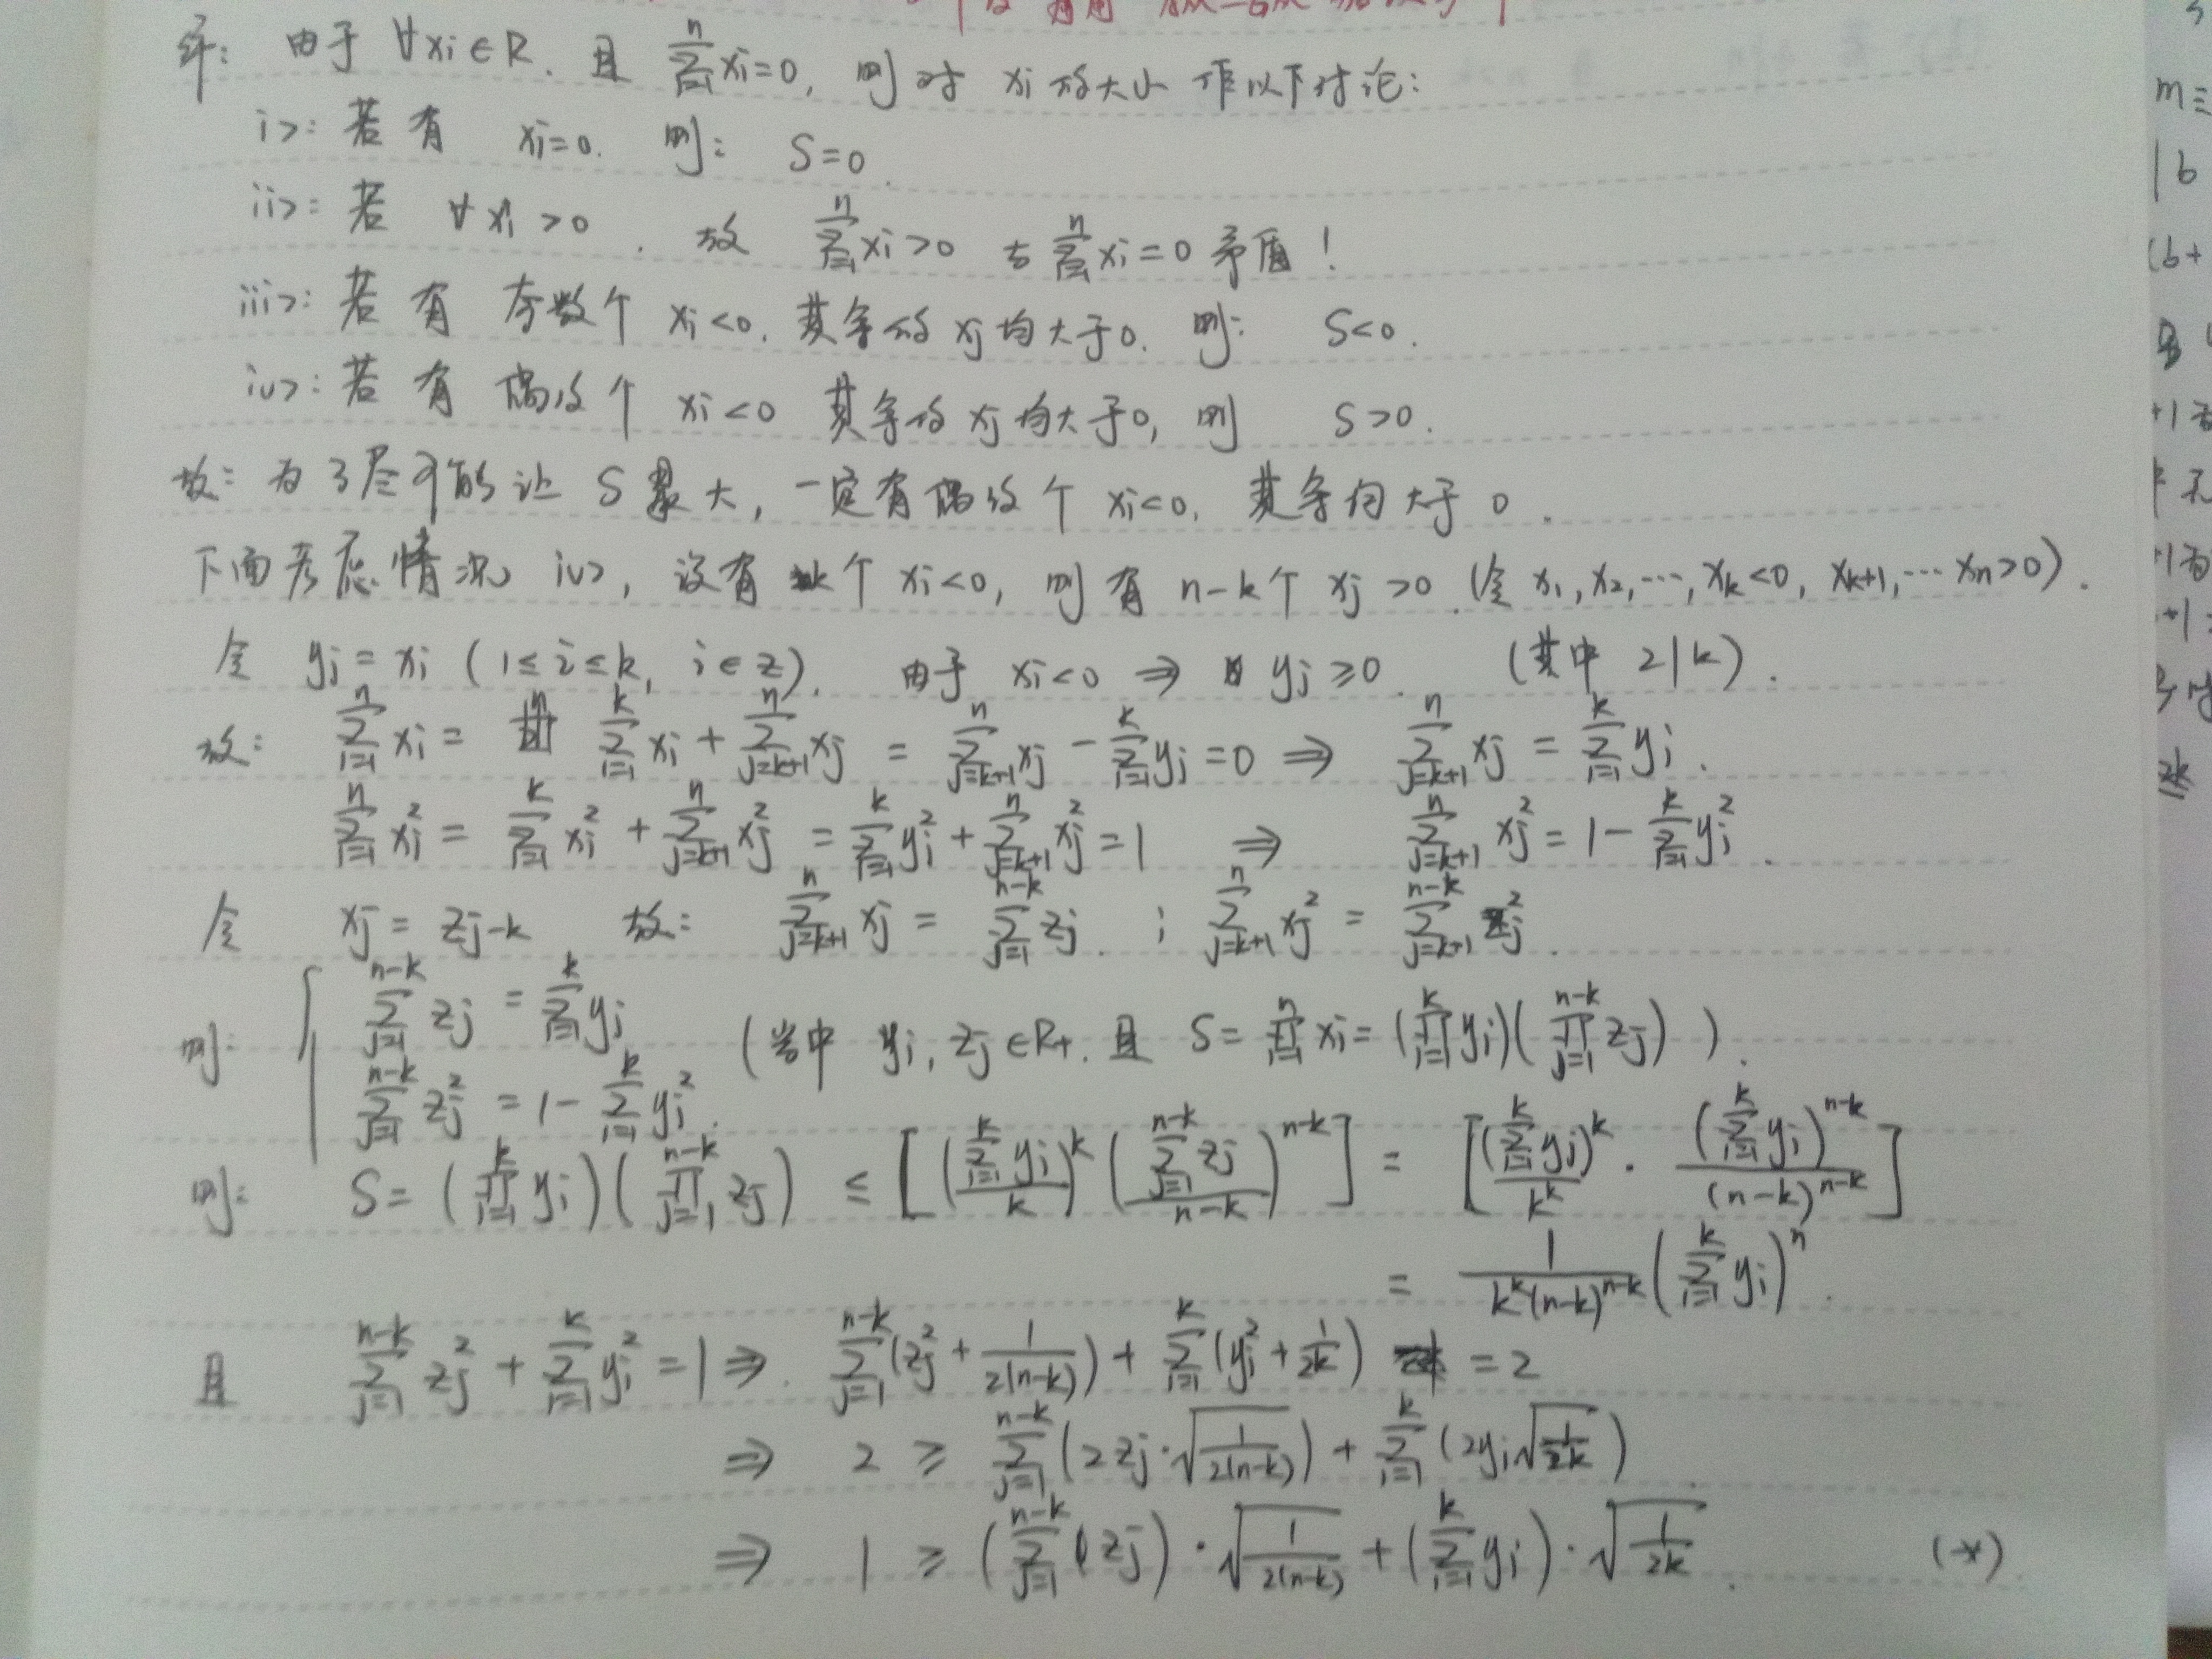 解: 由于 ∀xi∈R. 且 \sum_{i=1}^{n} xi=0, 则对 xi 的大小 作以下讨论:
i>: 若有 xi=0. 则: S=0.
ii>: 若 ∀xi>0. 故 \sum_{i=1}^{n} xi>0 与 \sum_{i=1}^{n} xi=0 矛盾!
iii>: 若有 奇数个 xi<0. 其余的 xj 均大于0. 则: S<0.
iv>: 若有 偶数个 xi<0 其余的 xj 均大于0, 则 S>0.
故: 为了尽可能让 S 最大, 一定有偶数个 xi<0, 其余均大于 0.
下面考虑情况 iv>, 设有 k个 xi<0, 则有 n-k个 xj>0. (令 x_1, x_2, ⋯, x_k<0, x_{k+1}, ⋯ x_n>0).
令 yi = xi (1≤i≤k, i∈z). 由于 xi<0 ⇒ yi≥0. (其中 2|k).
故: \sum_{i=1}^{n} xi = \sum_{i=1}^{k} xi + \sum_{j=k+1}^{n} xj = \sum_{j=k+1}^{n} xj - \sum_{i=1}^{k} yi = 0 ⇒ \sum_{j=k+1}^{n} xj = \sum_{i=1}^{k} yi.
\sum_{i=1}^{n} xi^2 = \sum_{i=1}^{k} xi^2 + \sum_{j=k+1}^{n} xj^2 = \sum_{i=1}^{k} yi^2 + \sum_{j=k+1}^{n} xj^2 = 1 ⇒ \sum_{j=k+1}^{n} xj^2 = 1 - \sum_{i=1}^{k} yi^2.
令 xj = z_{j-k} 故: \sum_{j=k+1}^{n} xj = \sum_{j=1}^{n-k} zj. ; \sum_{j=k+1}^{n} xj^2 = \sum_{j=k+1}^{n-k} zj^2.
则: { \sum_{j=1}^{n-k} zj = \sum_{i=1}^{k} yi
(当中 yi, zj∈R+. 且 S = \prod_{i=1}^{n} xi = (\prod_{i=1}^{k} yi)(\prod_{j=1}^{n-k} zj) ).
\sum_{j=1}^{n-k} zj^2 = 1 - \sum_{i=1}^{k} yi^2.
则: S = (\prod_{i=1}^{k} yi)(\prod_{j=1}^{n-k} zj) ≤ [ (\frac{\sum_{i=1}^{k} yi}{k})^k (\frac{\sum_{j=1}^{n-k} zj}{n-k})^{n-k} ] = [ \frac{(\sum_{i=1}^{k} yi)^k}{k^k} · \frac{(\sum_{i=1}^{k} yi)^{n-k}}{(n-k)^{n-k}} ]
= \frac{1}{k^k (n-k)^{n-k}} (\sum_{i=1}^{k} yi)^n.
且 \sum_{j=1}^{n-k} zj^2 + \sum_{i=1}^{k} yi^2 = 1 ⇒. \sum_{j=1}^{n-k} (zj^2 + \frac{1}{2(n-k)}) + \sum_{i=1}^{k} (yi^2 + \frac{1}{2k}) = 2
⇒ 2 ≥ \sum_{j=1}^{n-k} (2zj · \sqrt{\frac{1}{2(n-k)}}) + \sum_{i=1}^{k} (2yi \sqrt{\frac{1}{2k}})
⇒ 1 ≥ (\sum_{j=1}^{n-k} zj) · \sqrt{\frac{1}{2(n-k)}} + (\sum_{i=1}^{k} yi) · \sqrt{\frac{1}{2k}}. (*)
m≡
|b
(b+
2k